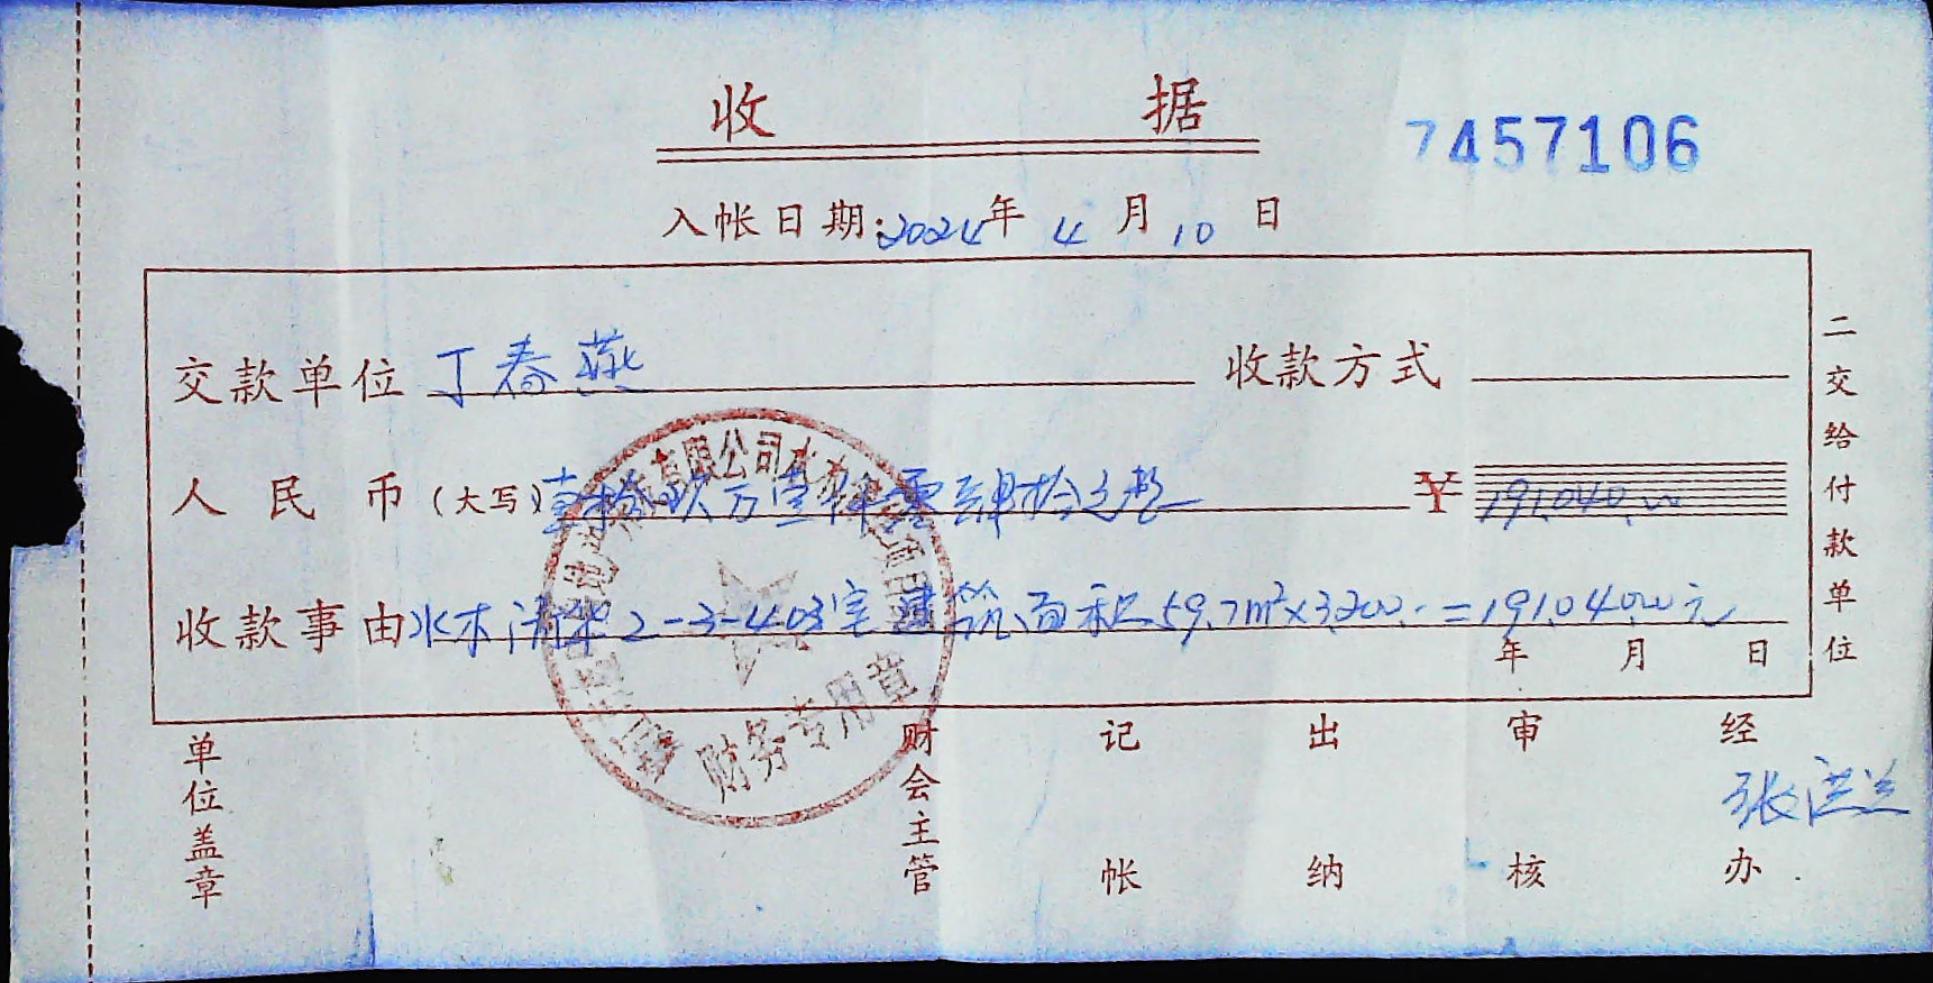 收 据
7457106
入帐日期:2024年 4 月 10 日
交款单位 丁春燕 收款方式
人民币(大写)壹拾玖万壹仟零肆拾元整 ¥ 191,040.00
收款事由 水木清华2-3-403室建筑面积59.7m²×3,200.-=191,040.00元
年 月 日
二交给付款单位
有限公司
财务专用章
单位盖章 财会主管 记帐 出纳 审核 经办 张